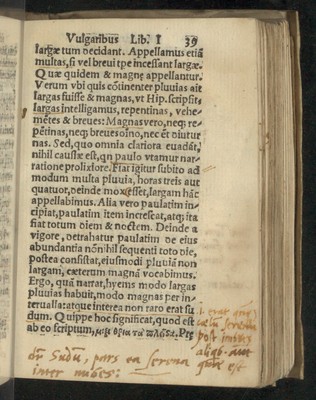 Vulgaribus Lib. I 39
largæ tum decidant. Appellamus etiā
multas, si vel breui tpe incessant largæ.
Quæ quidem & magnę appellantur.
Verum vbi quis cōtinenter pluuias ait
largas fuisse & magnas, vt Hip. scripsit,
largas intelligamus, repentinas, vehe-
mētes & breues: Magnas vero, neq; re-
pētinas, neq; breues oīno, nec ēt diutur
nas. Sed, quo omnia clariora euadāt,
nihil caussæ est, qn paulo vtamur nar-
ratione prolixiore. Fiat igitur subito ad
modum multa pluuia, horas treis aut
quatuor, deinde mox cesset, largam hāc
appellabimus. Alia vero paulatim in-
cipiat, paulatim item increscat, atq; ita
fiat totum diem & noctem. Deinde a
vigore, detrahatur paulatim de eius
abundantia nōnihil sequenti toto die,
postea consistat, eiusmodi pluuiā non
largam, cæterum magnā vocabimus.
Ergo, quā narrat, hyems modo largas
pluuias habuit, modo magnas per in-
terualla: atque interea non raro erat su
dum. Quippe hoc significat, quod est
ab eo scriptum, Pre
i. erat
cœlū serenū
post imbres
aliqb. aut
est
Sudū, pars ea serena
inter nubes: